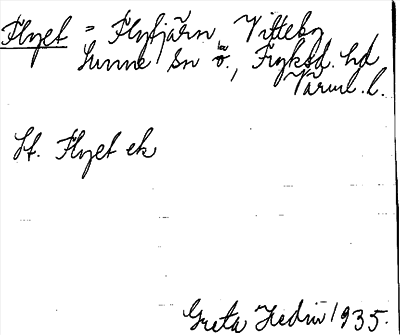 Flyet = Flytjärn, Vitteby
Sunne sn ö., Fryksd. hd
Värml. l.
St. Flyet ek
Greta Hedin 1935.